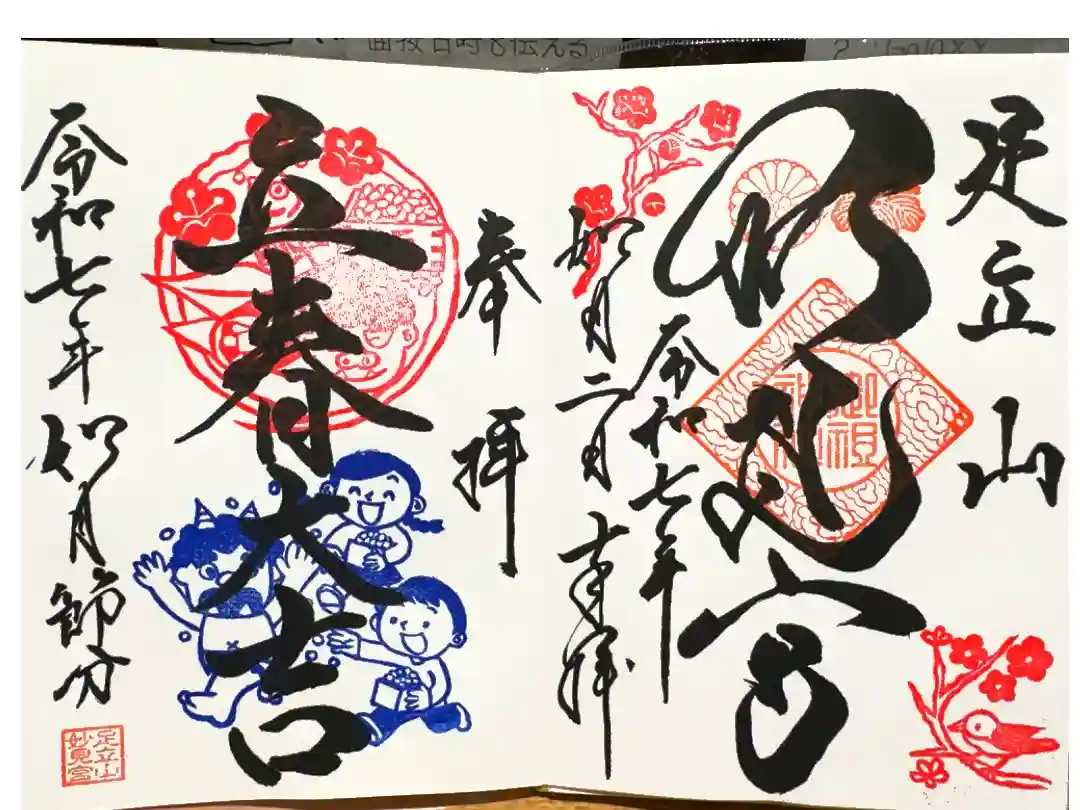 足立山
妙見宮
御祖
神社
令和七年
如月二日
奉拝
奉拝
立春大吉
令和七年如月節分
足立山
妙見宮